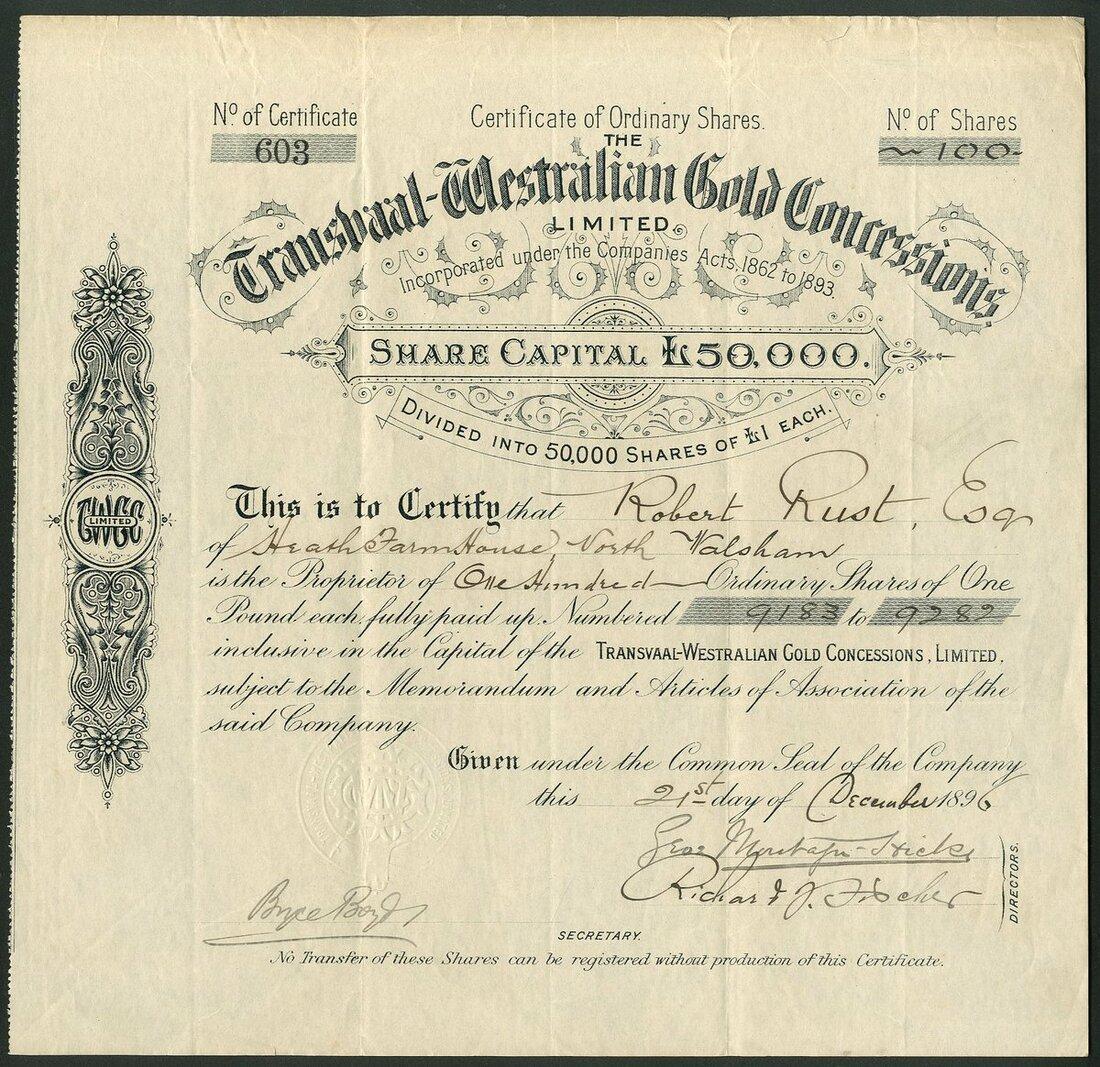 Nº of Certificate
603
Certificate of Ordinary Shares.
Nº of Shares
100
THE
Transvaal-Westralian Gold Concessions,
LIMITED.
Incorporated under the Companies Acts, 1862 to 1893.
SHARE CAPITAL £50,000.
DIVIDED INTO 50,000 SHARES OF £1 EACH.
LIMITED
This is to Certify that Robert Rust, Esq
of Heath Farm House, North Walsham
is the Proprietor of One Hundred Ordinary Shares of One
Pound each, fully paid up, Numbered 9183 to 9282
inclusive in the Capital of the TRANSVAAL-WESTRALIAN GOLD CONCESSIONS, LIMITED,
subject to the Memorandum and Articles of Association of the
said Company.
Given under the Common Seal of the Company
this 21st day of December 1896
Hicks
Richard J. Fischer
DIRECTORS.
Bryce Boyd
SECRETARY.
No Transfer of these Shares can be registered without production of this Certificate.